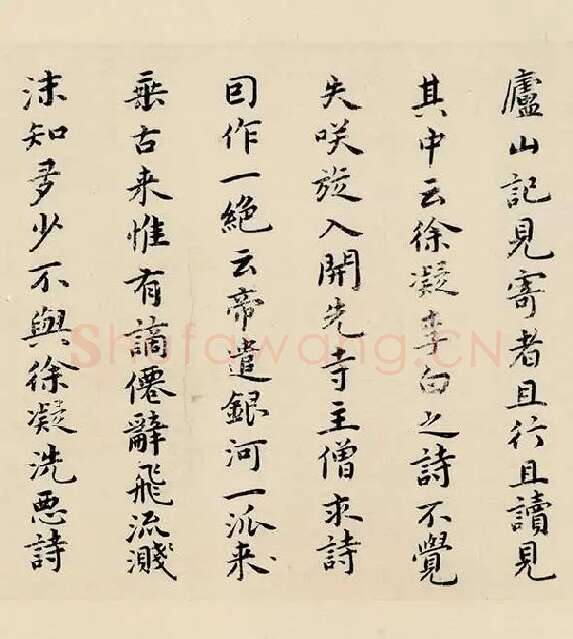 廬山記見寄者且行且讀見
其中云徐凝李白之詩不覺
失咲旋入開先寺主僧求詩
囙作一絕云帝遣銀河一派来
垂古来惟有謫僊辭飛流濺
沫知多少不與徐凝洗悪詩
Shufawang.CN